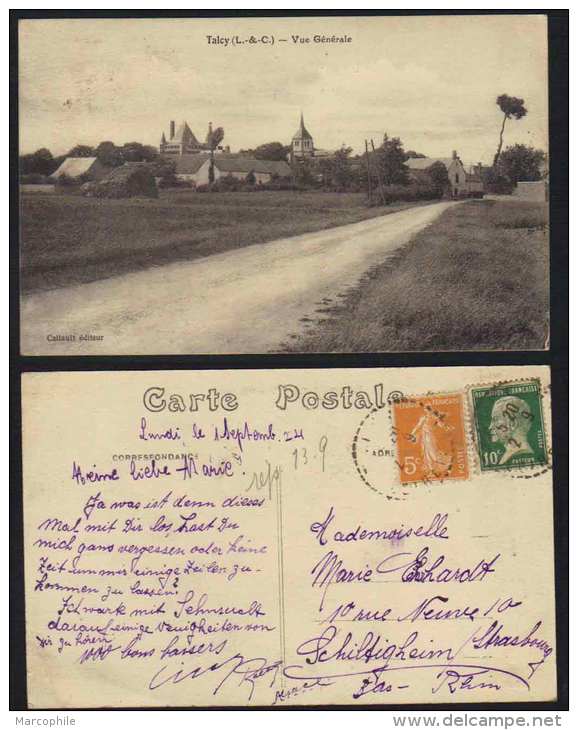 Talcy (L.-&-C.) — Vue Générale
Callault éditeur
Carte Postale
Lundi, le 1 Septemb. 24
CORRESPONDANCE
ADRE
rép 13.9
Meine liebe Marie!
Ja was ist denn dieses
Mal mit Dir los. Hast Du
mich ganz vergessen oder keine
Zeit um mir einige Zeilen zu-
kommen zu lassen?
Ich warte mit Sehnsucht
darauf einige Neuigkeiten von
Dir zu hören
1000 bons baisers
5c
10c
PASTEUR
POSTES
Mademoiselle
Marie Erhardt
10 rue Neuve 10
Schiltigheim (Strasbourg)
Bas-Rhin
Alsace
Marcophile
delcampe.net